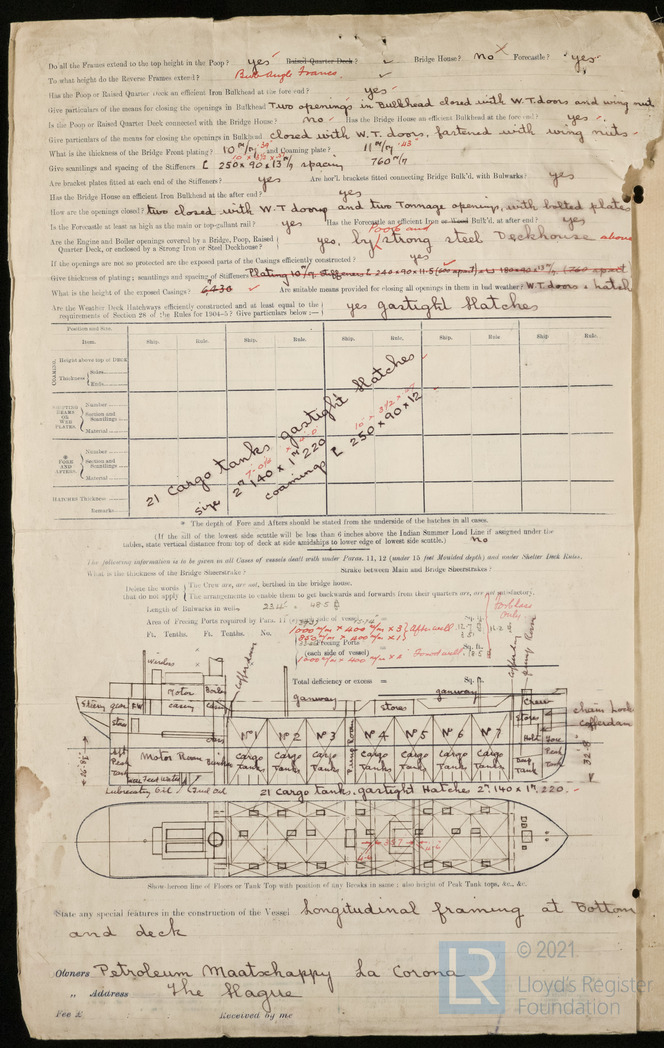 Do all the Frames extend to the top height in the Poop? yes Raised Quarter Deck? Bridge House? No Forecastle? yes
To what height do the Reverse Frames extend? Bulb Angle Frames.
Has the Poop or Raised Quarter Deck an efficient Iron Bulkhead at the fore end? yes
Give particulars of the means for closing the openings in Bulkhead Two openings in Bulkhead closed with W.T. doors and wing nut
Is the Poop or Raised Quarter Deck connected with the Bridge House? No Has the Bridge House an efficient Bulkhead at the fore end? yes
Give particulars of the means for closing the openings in Bulkhead closed with W.T. doors, fastened with wing nuts
What is the thickness of the Bridge Front plating? 10 m/m .39 and Coaming plate? 11 m/m .43
Give scantlings and spacing of the Stiffeners [ 250 x 90 x 13 m/m spacing 760 m/m
Are bracket plates fitted at each end of the Stiffeners? yes Are hor'l. brackets fitted connecting Bridge Bulk'd. with Bulwarks? yes
Has the Bridge House an efficient Iron Bulkhead at the after end? yes
How are the openings closed? two closed with W.T doors and two Tonnage openings, with bolted plates
Is the Forecastle at least as high as the main or top-gallant rail? yes Has the Forecastle an efficient Iron or Wood Bulk'd. at after end? yes
Are the Engine and Boiler openings covered by a Bridge, Poop, Raised Quarter Deck, or enclosed by a Strong Iron or Steel Deckhouse? yes, by Poop and strong steel Deckhouse above
If the openings are not so protected are the exposed parts of the Casings efficiently constructed? yes
Give thickness of plating; scantlings and spacing of Stiffeners Plating 10 m/m Stiffeners [ 240 x 90 x 11.5 (600 apart) 180 x 90 x 13 m/m (760 apart
What is the height of the exposed Casings? 6,430 Are suitable means provided for closing all openings in them in bad weather? W.T. doors & hatch
Are the Weather Deck Hatchways efficiently constructed and at least equal to the requirements of Section 28 of the Rules for 1904-5? Give particulars below:— yes gastight Hatches
Position and Size.
Item. Ship. Rule. Ship. Rule. Ship. Rule. Ship. Rule.
COAMING. Height above top of DECK
Thickness Sides
Ends
SHIFTING BEAMS OR WEB PLATES. Number
Section and Scantlings
Material
* FORE AND AFTERS. Number
Section and Scantlings
Material
HATCHES Thickness
Remarks
21 cargo tanks gastight Hatches
size 2 m 140 x 1 m 220
coamings [ 250 x 90 x 12
* The depth of Fore and Afters should be stated from the underside of the hatches in all cases.
(If the sill of the lowest side scuttle will be less than 6 inches above the Indian Summer Load Line if assigned under the tables, state vertical distance from top of deck at side amidships to lower edge of lowest side scuttle.) No
The following information is to be given in all Cases of vessels dealt with under Paras. 11, 12 (under 15 feet Moulded depth) and under Shelter Deck Rules.
What is the thickness of the Bridge Sheerstrake? Strake between Main and Bridge Sheerstrakes?
Delete the words that do not apply The Crew are, are not, berthed in the bridge house.
The arrangements to enable them to get backwards and forwards from their quarters are, are not satisfactory.
Length of Bulwarks in well
Area of Freeing Ports required by Para. 11 (each side of vessel) = Sq. ft.
Ft. Tenths. Ft. Tenths. No.
1000 m/m x 400 m/m x 3 After well
850 m/m x 400 m/m x 1
Freeing Ports
(each side of vessel)
1000 m/m x 400 m/m x 2 Forward well
Total deficiency or excess = Sq. ft.
wireless
Cofferdam
Motor casing
gangway
stores
gangway
Cofferdam
pump room
Crew
chain Lock
Cofferdam
Stores
Hold
Aft Peak Tank
Motor Room
Bunker
No 1 cargo Tank
No 2 cargo Tank
No 3 cargo Tank
Pump room
No 4 cargo Tank
No 5 cargo Tank
No 6 cargo Tank
No 7 cargo Tank
Deep Tank
Fore Peak Tank
32'-8"
Feed Water
Lubricating Oil Fuel Oil
21 Cargo tanks, gastight Hatche 2 m. 140 x 1 m. 220.
Show hereon line of Floors or Tank Top with position of any Breaks in same; also height of Peak Tank tops, &c., &c.
State any special features in the construction of the Vessel Longitudinal framing at Bottom
and deck
Owners Petroleum Maatschappy La Corona
" Address The Hague
Fee £ Received by me
© 2021
LR
Lloyd's Register
Foundation